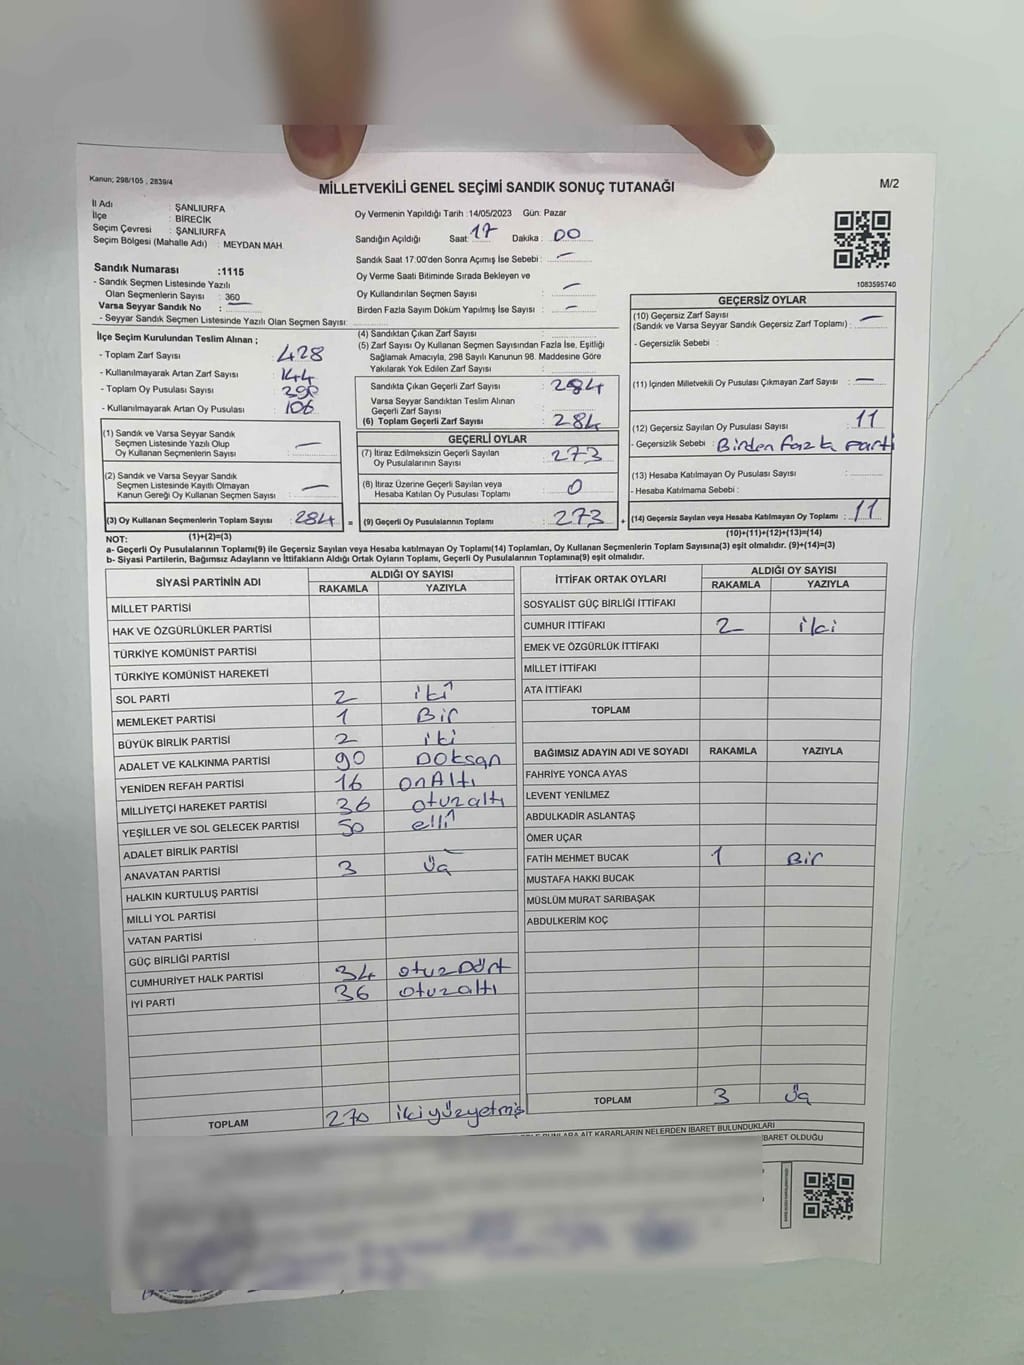 Kanun; 298/105 , 2839/4
MİLLETVEKİLİ GENEL SEÇİMİ SANDIK SONUÇ TUTANAĞI
M/2
İl Adı : ŞANLIURFA
İlçe : BİRECİK
Seçim Çevresi : ŞANLIURFA
Seçim Bölgesi (Mahalle Adı) : MEYDAN MAH
Sandık Numarası :1115
- Sandık Seçmen Listesinde Yazılı
Olan Seçmenlerin Sayısı : 360
Varsa Seyyar Sandık No :
- Seyyar Sandık Seçmen Listesinde Yazılı Olan Seçmen Sayısı:
Oy Vermenin Yapıldığı Tarih :14/05/2023 Gün: Pazar
Sandığın Açıldığı Saat: 17 Dakika : 00
Sandık Saat 17:00'den Sonra Açımış İse Sebebi : —
Oy Verme Saati Bitiminde Sırada Bekleyen ve
Oy Kullandırılan Seçmen Sayısı : —
Birden Fazla Sayım Döküm Yapılmış İse Sayısı : —
1083595740
İlçe Seçim Kurulundan Teslim Alınan ;
- Toplam Zarf Sayısı : 428
- Kullanılmayarak Artan Zarf Sayısı : 144
- Toplam Oy Pusulası Sayısı : 390
- Kullanılmayarak Artan Oy Pusulası : 106
(1) Sandık ve Varsa Seyyar Sandık
Seçmen Listesinde Yazılı Olup
Oy Kullanan Seçmenlerin Sayısı : —
(2) Sandık ve Varsa Seyyar Sandık
Seçmen Listesinde Kayıtlı Olmayan
Kanun Gereği Oy Kullanan Seçmen Sayısı : —
(3) Oy Kullanan Seçmenlerin Toplam Sayısı : 284 =
(1)+(2)=(3)
(4) Sandıktan Çıkan Zarf Sayısı :
(5) Zarf Sayısı Oy Kullanan Seçmen Sayısından Fazla İse, Eşitliği
Sağlamak Amacıyla, 298 Sayılı Kanunun 98. Maddesine Göre
Yakılarak Yok Edilen Zarf Sayısı :
Sandıkta Çıkan Geçerli Zarf Sayısı : 284
Varsa Seyyar Sandıktan Teslim Alınan
Geçerli Zarf Sayısı :
(6) Toplam Geçerli Zarf Sayısı : 284
GEÇERLİ OYLAR
(7) İtiraz Edilmeksizin Geçerli Sayılan
Oy Pusulalarının Sayısı : 273
(8) İtiraz Üzerine Geçerli Sayılan veya
Hesaba Katılan Oy Pusulası Toplamı : 0
(9) Geçerli Oy Pusulalarının Toplamı : 273 +
GEÇERSİZ OYLAR
(10) Geçersiz Zarf Sayısı
(Sandık ve Varsa Seyyar Sandık Geçersiz Zarf Toplamı) : —
- Geçersizlik Sebebi :
(11) İçinden Milletvekili Oy Pusulası Çıkmayan Zarf Sayısı : —
(12) Geçersiz Sayılan Oy Pusulası Sayısı : 11
- Geçersizlik Sebebi : Birden fazla parti
(13) Hesaba Katılmayan Oy Pusulası Sayısı :
- Hesaba Katılmama Sebebi :
(14) Geçersiz Sayılan veya Hesaba Katılmayan Oy Toplamı : 11
(10)+(11)+(12)+(13)=(14)
NOT:
a- Geçerli Oy Pusulalarının Toplamı(9) ile Geçersiz Sayılan veya Hesaba katılmayan Oy Toplamı(14) Toplamları, Oy Kullanan Seçmenlerin Toplam Sayısına(3) eşit olmalıdır. (9)+(14)=(3)
b- Siyasi Partilerin, Bağımsız Adayların ve İttifakların Aldığı Ortak Oyların Toplamı, Geçerli Oy Pusulalarının Toplamına(9) eşit olmalıdır.
SİYASİ PARTİNİN ADI ALDIĞI OY SAYISI
RAKAMLA YAZIYLA
MİLLET PARTİSİ
HAK VE ÖZGÜRLÜKLER PARTİSİ
TÜRKİYE KOMÜNİST PARTİSİ
TÜRKİYE KOMÜNİST HAREKETİ
SOL PARTİ 2 iki
MEMLEKET PARTİSİ 1 Bir
BÜYÜK BİRLİK PARTİSİ 2 iki
ADALET VE KALKINMA PARTİSİ 90 Doksan
YENİDEN REFAH PARTİSİ 16 onAltı
MİLLİYETÇİ HAREKET PARTİSİ 36 otuzaltı
YEŞİLLER VE SOL GELECEK PARTİSİ 50 elli
ADALET BİRLİK PARTİSİ
ANAVATAN PARTİSİ 3 Üç
HALKIN KURTULUŞ PARTİSİ
MİLLİ YOL PARTİSİ
VATAN PARTİSİ
GÜÇ BİRLİĞİ PARTİSİ
CUMHURİYET HALK PARTİSİ 34 otuzDört
İYİ PARTİ 36 otuzaltı
TOPLAM 270 ikiyüzyetmiş
İTTİFAK ORTAK OYLARI ALDIĞI OY SAYISI
RAKAMLA YAZIYLA
SOSYALİST GÜÇ BİRLİĞİ İTTİFAKI
CUMHUR İTTİFAKI 2 iki
EMEK VE ÖZGÜRLÜK İTTİFAKI
MİLLET İTTİFAKI
ATA İTTİFAKI
TOPLAM
BAĞIMSIZ ADAYIN ADI VE SOYADI RAKAMLA YAZIYLA
FAHRİYE YONCA AYAS
LEVENT YENİLMEZ
ABDULKADİR ASLANTAŞ
ÖMER UÇAR
FATİH MEHMET BUCAK 1 Bir
MUSTAFA HAKKI BUCAK
MÜSLÜM MURAT SARIBAŞAK
ABDULKERİM KOÇ
TOPLAM 3 Üç
AİT KARARLARIN NELERDEN İBARET BULUNDUKLARI
İBARET OLDUĞU